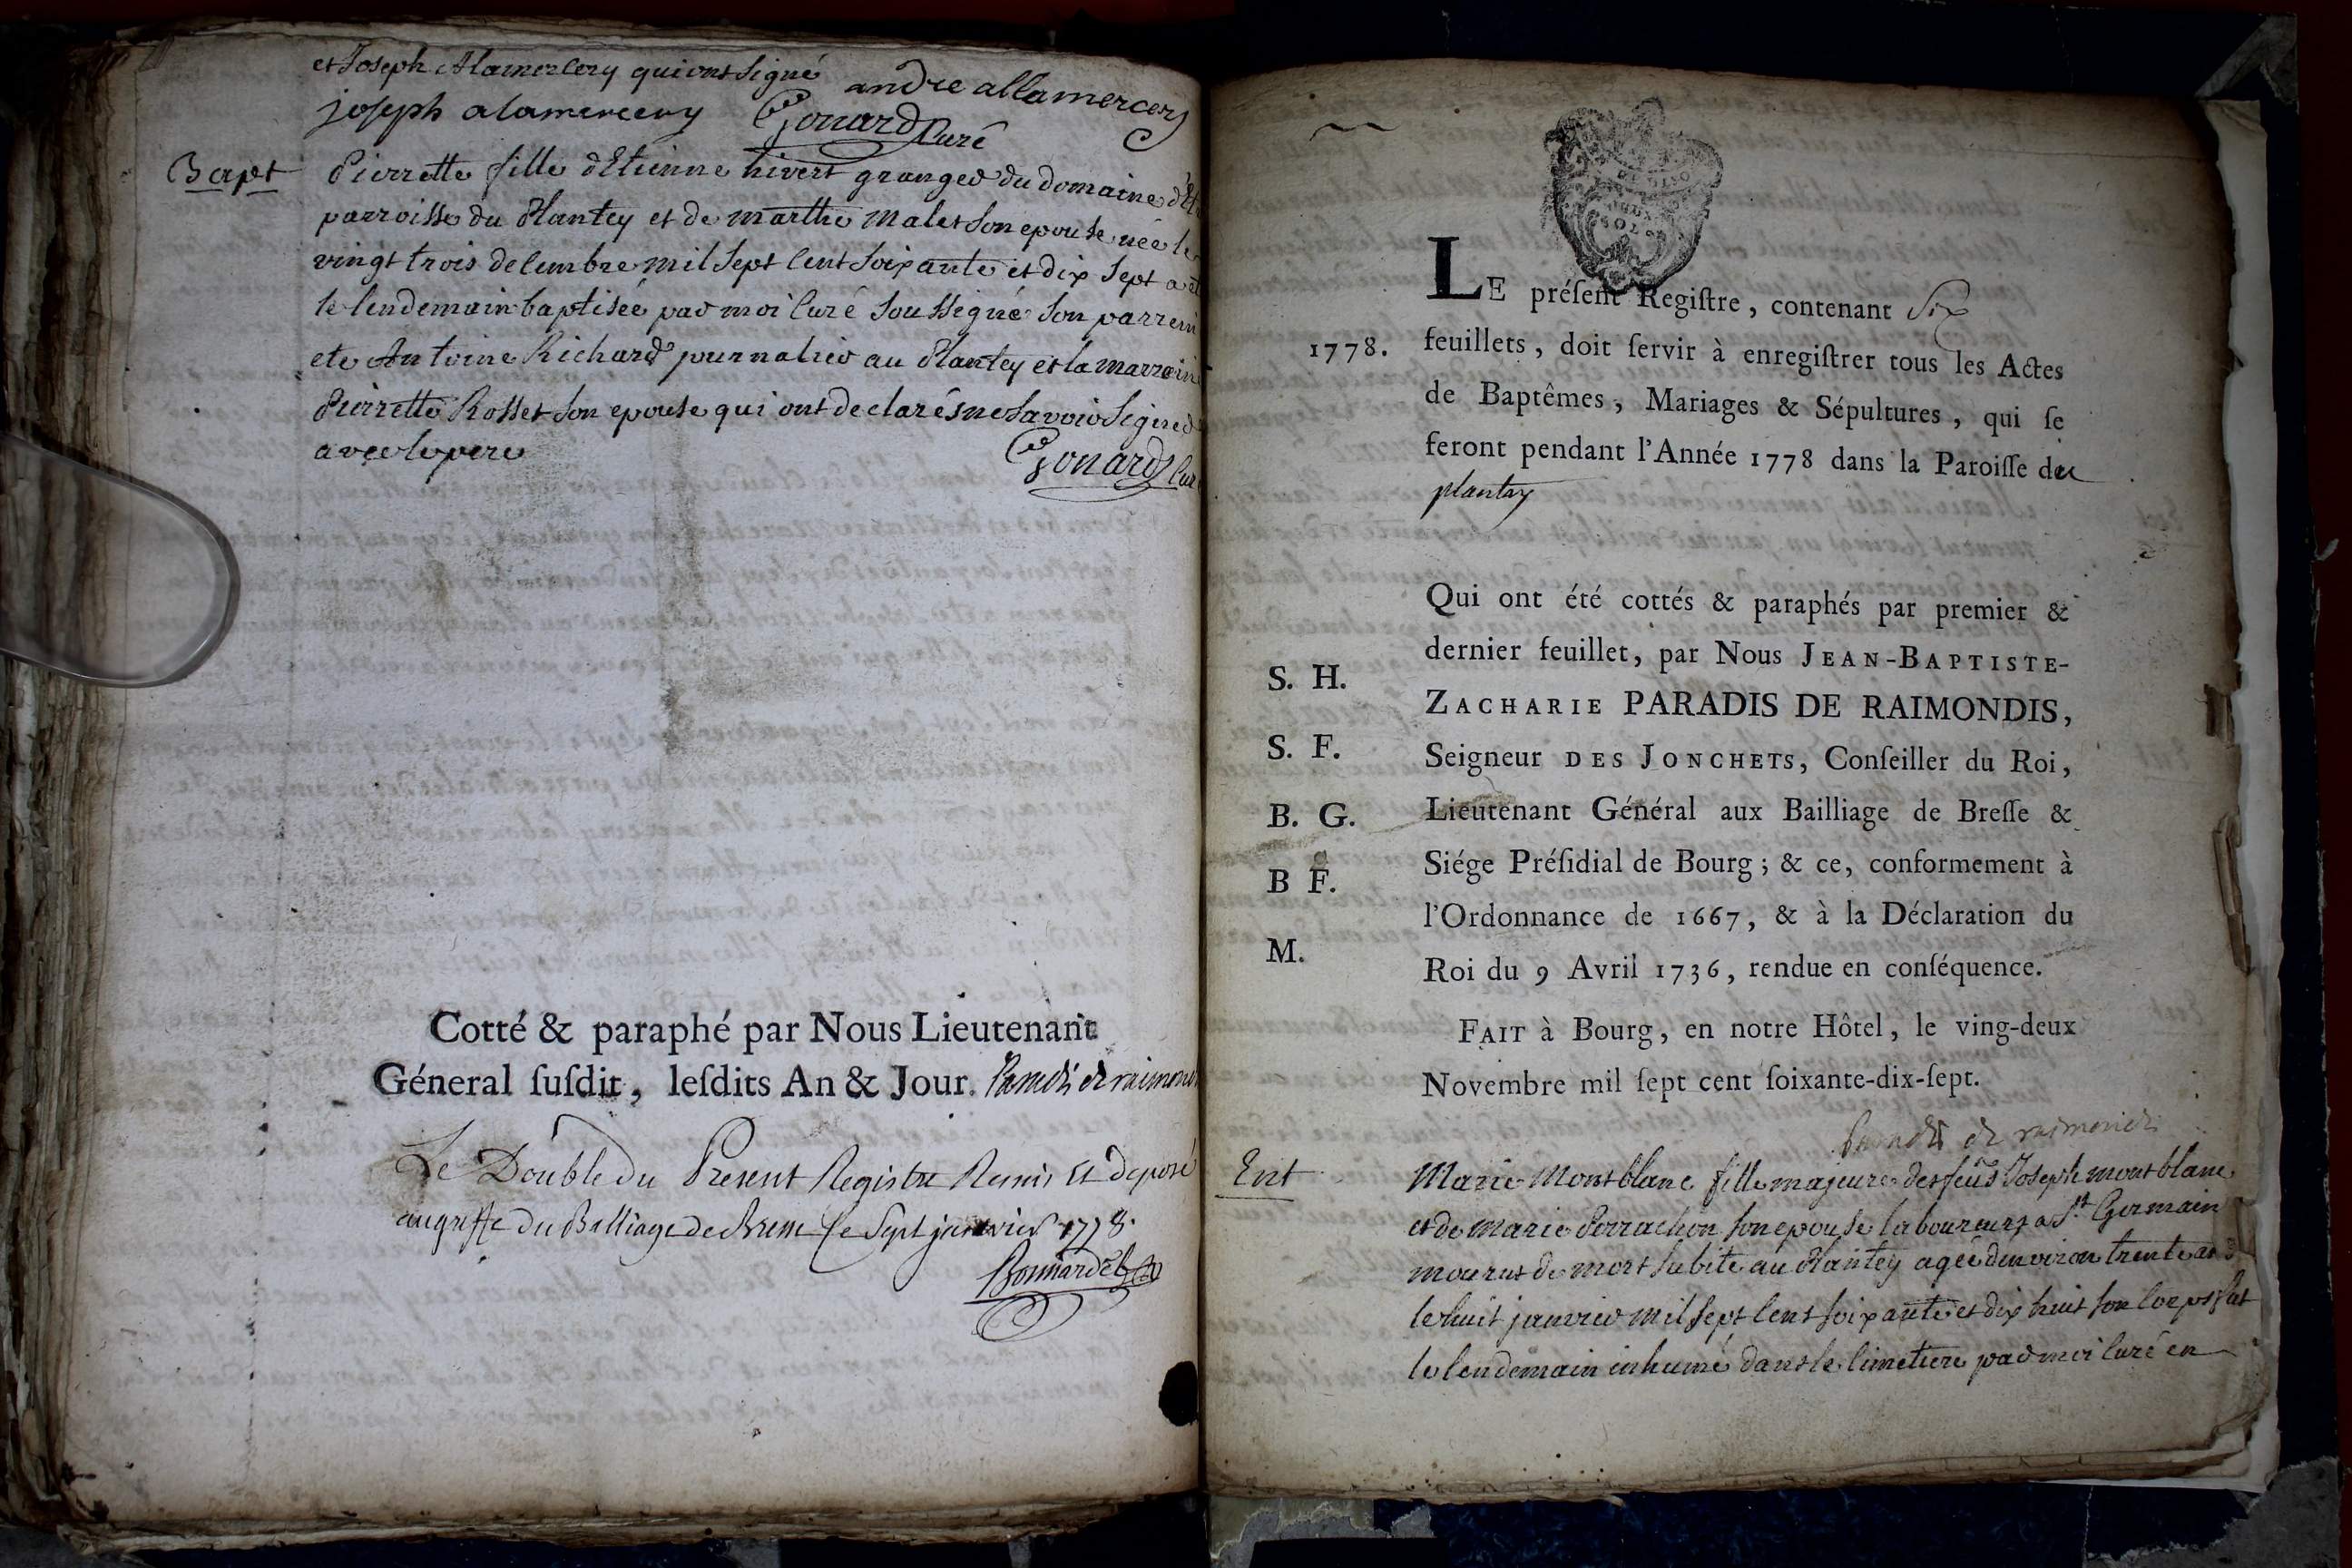 et Joseph Alamercery qui ont signé
andre allamercery
joseph alamercery Gonard Curé
Bapt
Pierrette fille d'Etienne hivert granger du domaine
parroisse du Plantey et de marthe Malet son epouse née le
vingt trois decembre mil sept cent soixante et dix sept a
le lendemain baptisée par moi Curé soussigné son parrein
ete Antoine Richard journalier au Plantey et la marraine
Pierrette Rosset son epouse qui ont declarés ne savoir signer
avec le pere
Gonard Cur
Cotté & paraphé par Nous Lieutenant
Géneral ſuſdit, leſdits An & Jour. Paradis de raimon
Le Double du Present Registre Remis Et deposé
au greffe du Balliage de Bresse le sept janvier 1778.
Bonnardel
LE préſent Regiſtre, contenant Six
1778. feuillets, doit ſervir à enregiſtrer tous les Actes
de Baptêmes, Mariages & Sépultures, qui ſe
feront pendant l'Année 1778 dans la Paroiſſe du
plantay
Qui ont été cottés & paraphés par premier &
dernier feuillet, par Nous JEAN-BAPTISTE-
S. H.
ZACHARIE PARADIS DE RAIMONDIS,
S. F.
Seigneur DES JONCHETS, Conſeiller du Roi,
B. G.
Lieutenant Général aux Bailliage de Breſſe &
B F.
Siége Préſidial de Bourg; & ce, conformement à
l'Ordonnance de 1667, & à la Déclaration du
M.
Roi du 9 Avril 1736, rendue en conſéquence.
FAIT à Bourg, en notre Hôtel, le ving-deux
Novembre mil ſept cent ſoixante-dix-ſept.
Paradis de raimondis
Ent
Marie Montblanc fille majeure des feus Joseph montblanc
et de Marie Perrachon son epouse laboureurs a St Germain
mourut de mort subite au Plantey agée d'environ trente ans
le huit janvier mil sept cent soixante et dix huit son corps fut
le lendemain inhumé dans le cimetiere par moi Curé en